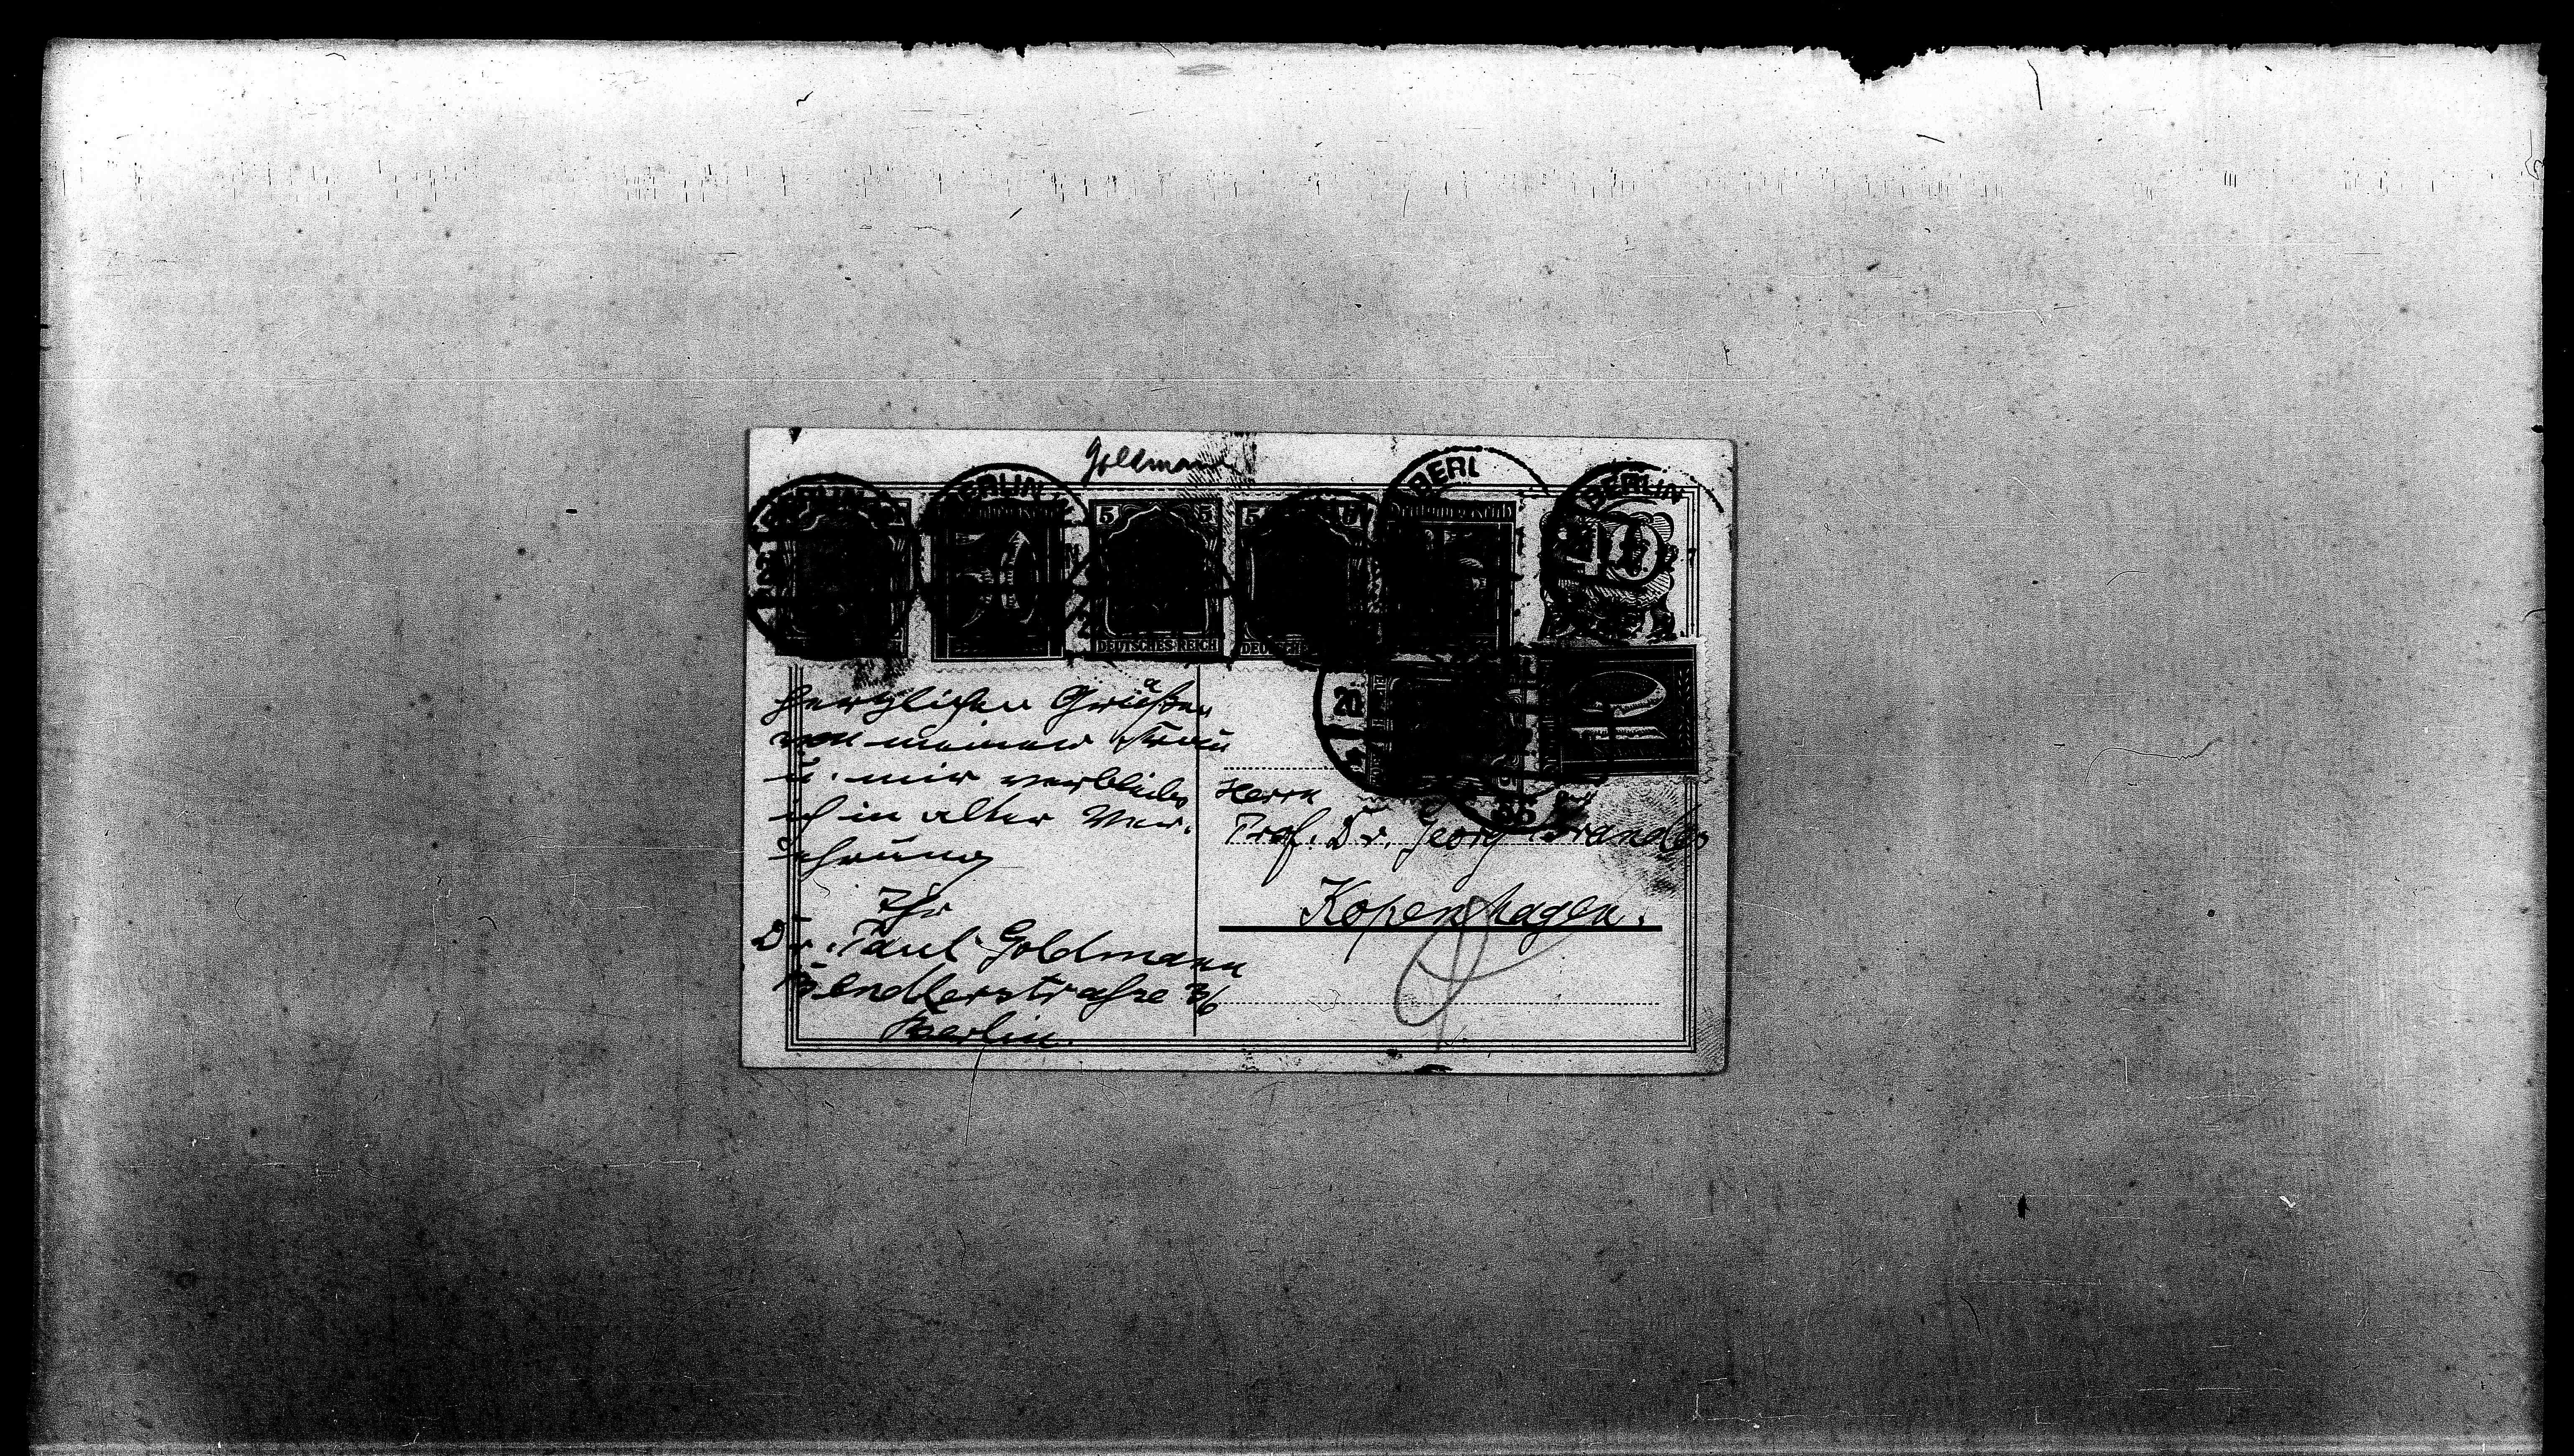 Goldmann
BERLIN
BERL
BERLIN
5 5
5 5
DEUTSCHES REICH
herzlichen Grüßen
von meiner Frau
u. mir verbleibe
ich in alter Ver-
ehrung
Ihr
Dr. Paul Goldmann
Bendlerstraße 36
Berlin.
20
35
Herrn
Prof. Dr. Georg Brandes
Kopenhagen.